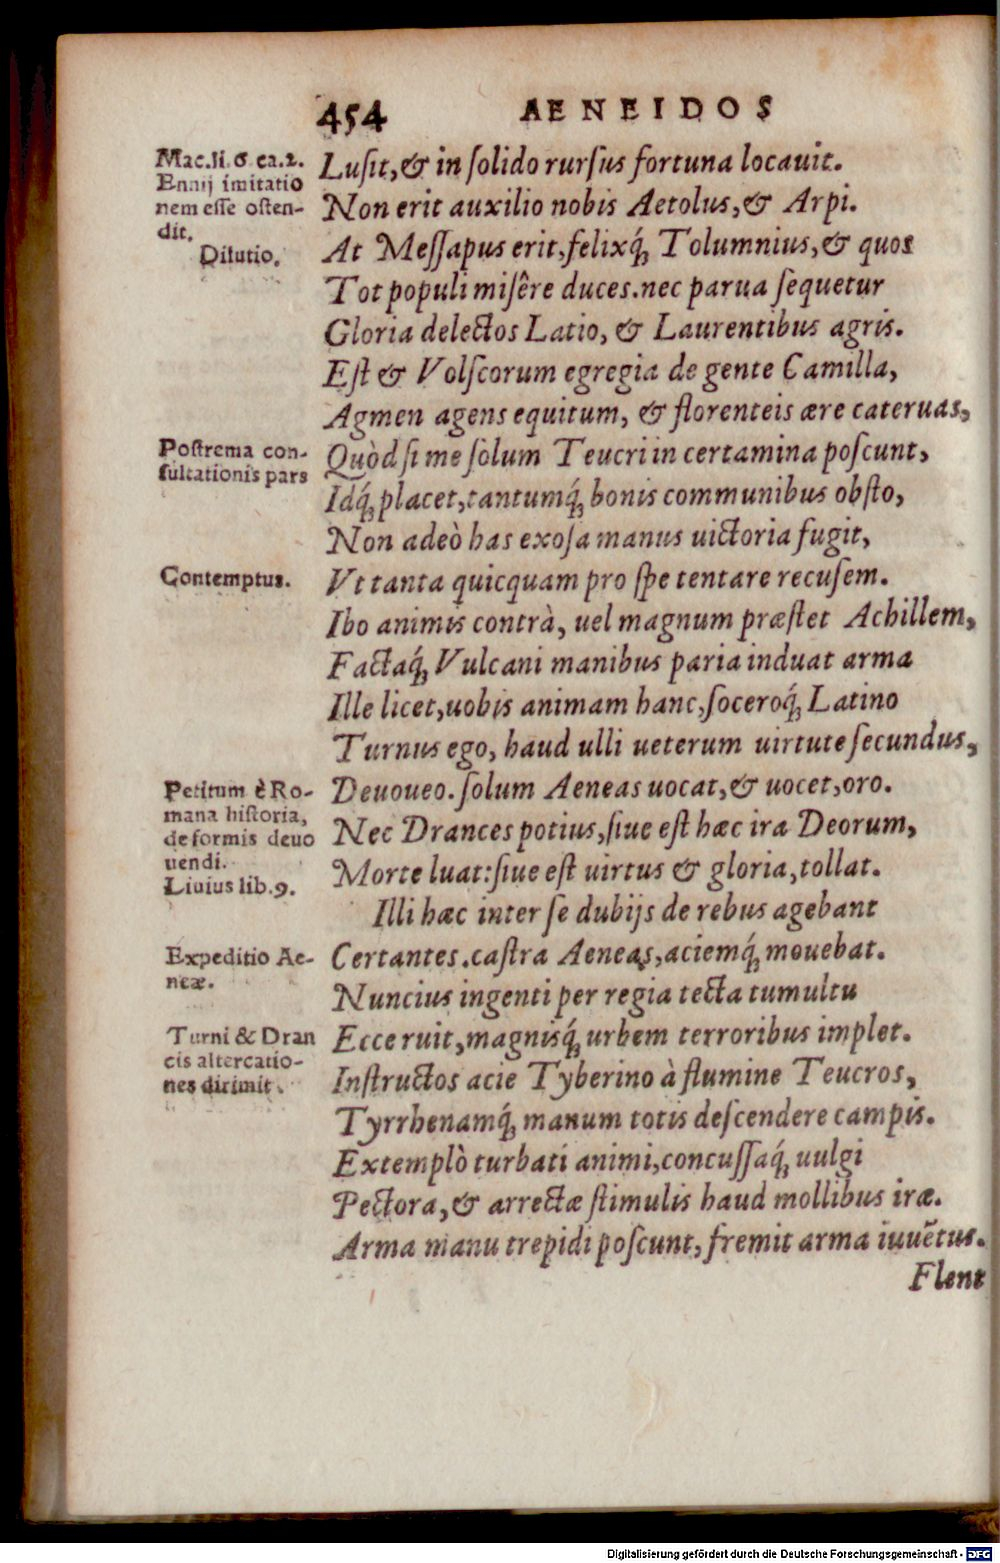 454 AENEIDOS
Mac.li.6 ca.2.
Ennij imitatio
nem esse osten-
dit.
Dilutio.
Lusit, & in solido rursus fortuna locauit.
Non erit auxilio nobis Aetolus, & Arpi.
At Messapus erit, felixq́; Tolumnius, & quos
Tot populi misêre duces. nec parua sequetur
Gloria delectos Latio, & Laurentibus agris.
Est & Volscorum egregia de gente Camilla,
Agmen agens equitum, & florenteis ære cateruas,
Postrema con-
sultationis pars
Quòd si me solum Teucri in certamina poscunt,
Idq́; placet, tantumq́; bonis communibus obsto,
Non adeò has exosa manus uictoria fugit,
Contemptus.
Vt tanta quicquam pro spe tentare recusem.
Ibo animis contrà, uel magnum præstet Achillem,
Factaq́; Vulcani manibus paria induat arma
Ille licet, uobis animam hanc, soceroq́; Latino
Turnus ego, haud ulli ueterum uirtute secundus,
Petitum è Ro-
mana historia,
de formis deuo
uendi.
Liuius lib.9.
Deuoueo. solum Aeneas uocat, & uocet, oro.
Nec Drances potius, siue est hæc ira Deorum,
Morte luat: siue est uirtus & gloria, tollat.
Illi hæc inter se dubijs de rebus agebant
Expeditio Ae-
neæ.
Certantes. castra Aeneas, aciemq́; mouebat.
Nuncius ingenti per regia tecta tumultu
Turni & Dran
cis altercatio-
nes dirimit.
Ecce ruit, magnisq́; urbem terroribus implet.
Instructos acie Tyberino à flumine Teucros,
Tyrrhenamq́; manum totis descendere campis.
Extemplò turbati animi, concussaq́; uulgi
Pectora, & arrectæ stimulis haud mollibus iræ.
Arma manu trepidi poscunt, fremit arma iuuẽtus.
Flent
Digitalisierung gefördert durch die Deutsche Forschungsgemeinschaft - DFG